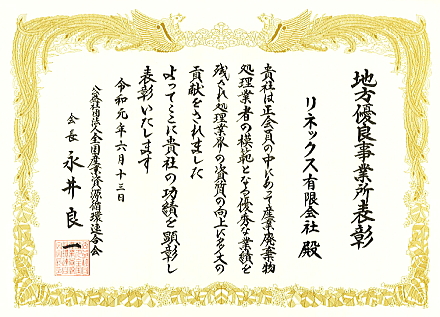 地方優良事業所表彰
リネックス有限会社 殿
貴社は正会員の中にあって産業廃棄物
処理業者の模範となる優秀な業績を
残され処理業界の資質の向上に多大の
貢献をされました
よってここに貴社の功績を顕彰し
表彰いたします
令和元年六月十三日
公益社団法人全国産業資源循環連合会
会長 永井良一